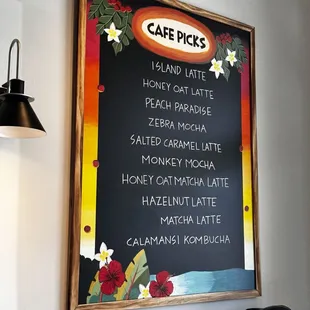 CAFE PICKS
ISLAND LATTE
HONEY OAT LATTE
PEACH PARADISE
ZEBRA MOCHA
SALTED CARAMEL LATTE
MONKEY MOCHA
HONEY OAT MATCHA LATTE
HAZELNUT LATTE
MATCHA LATTE
CALAMANSI KOMBUCHA